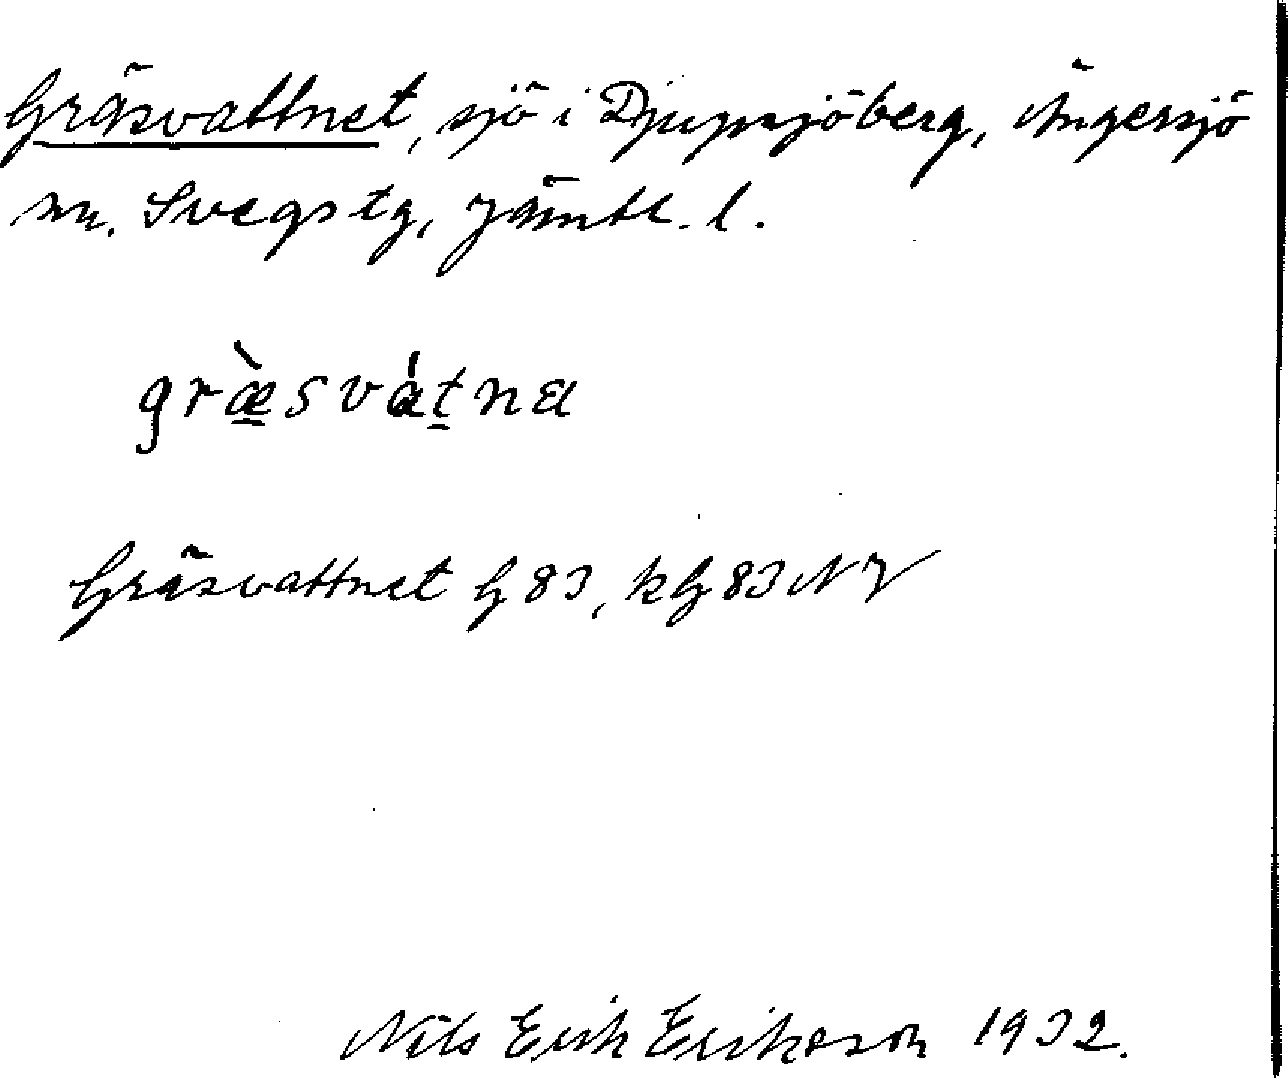 Gräsvattnet, sjö i Djupsjöberg, Ängersjö
sn. Svegs tg, Jämtl. l.
græ̀svátna
Gräsvattnet G 83, kG 83 NV
Nils Erik Eriksson 1932.